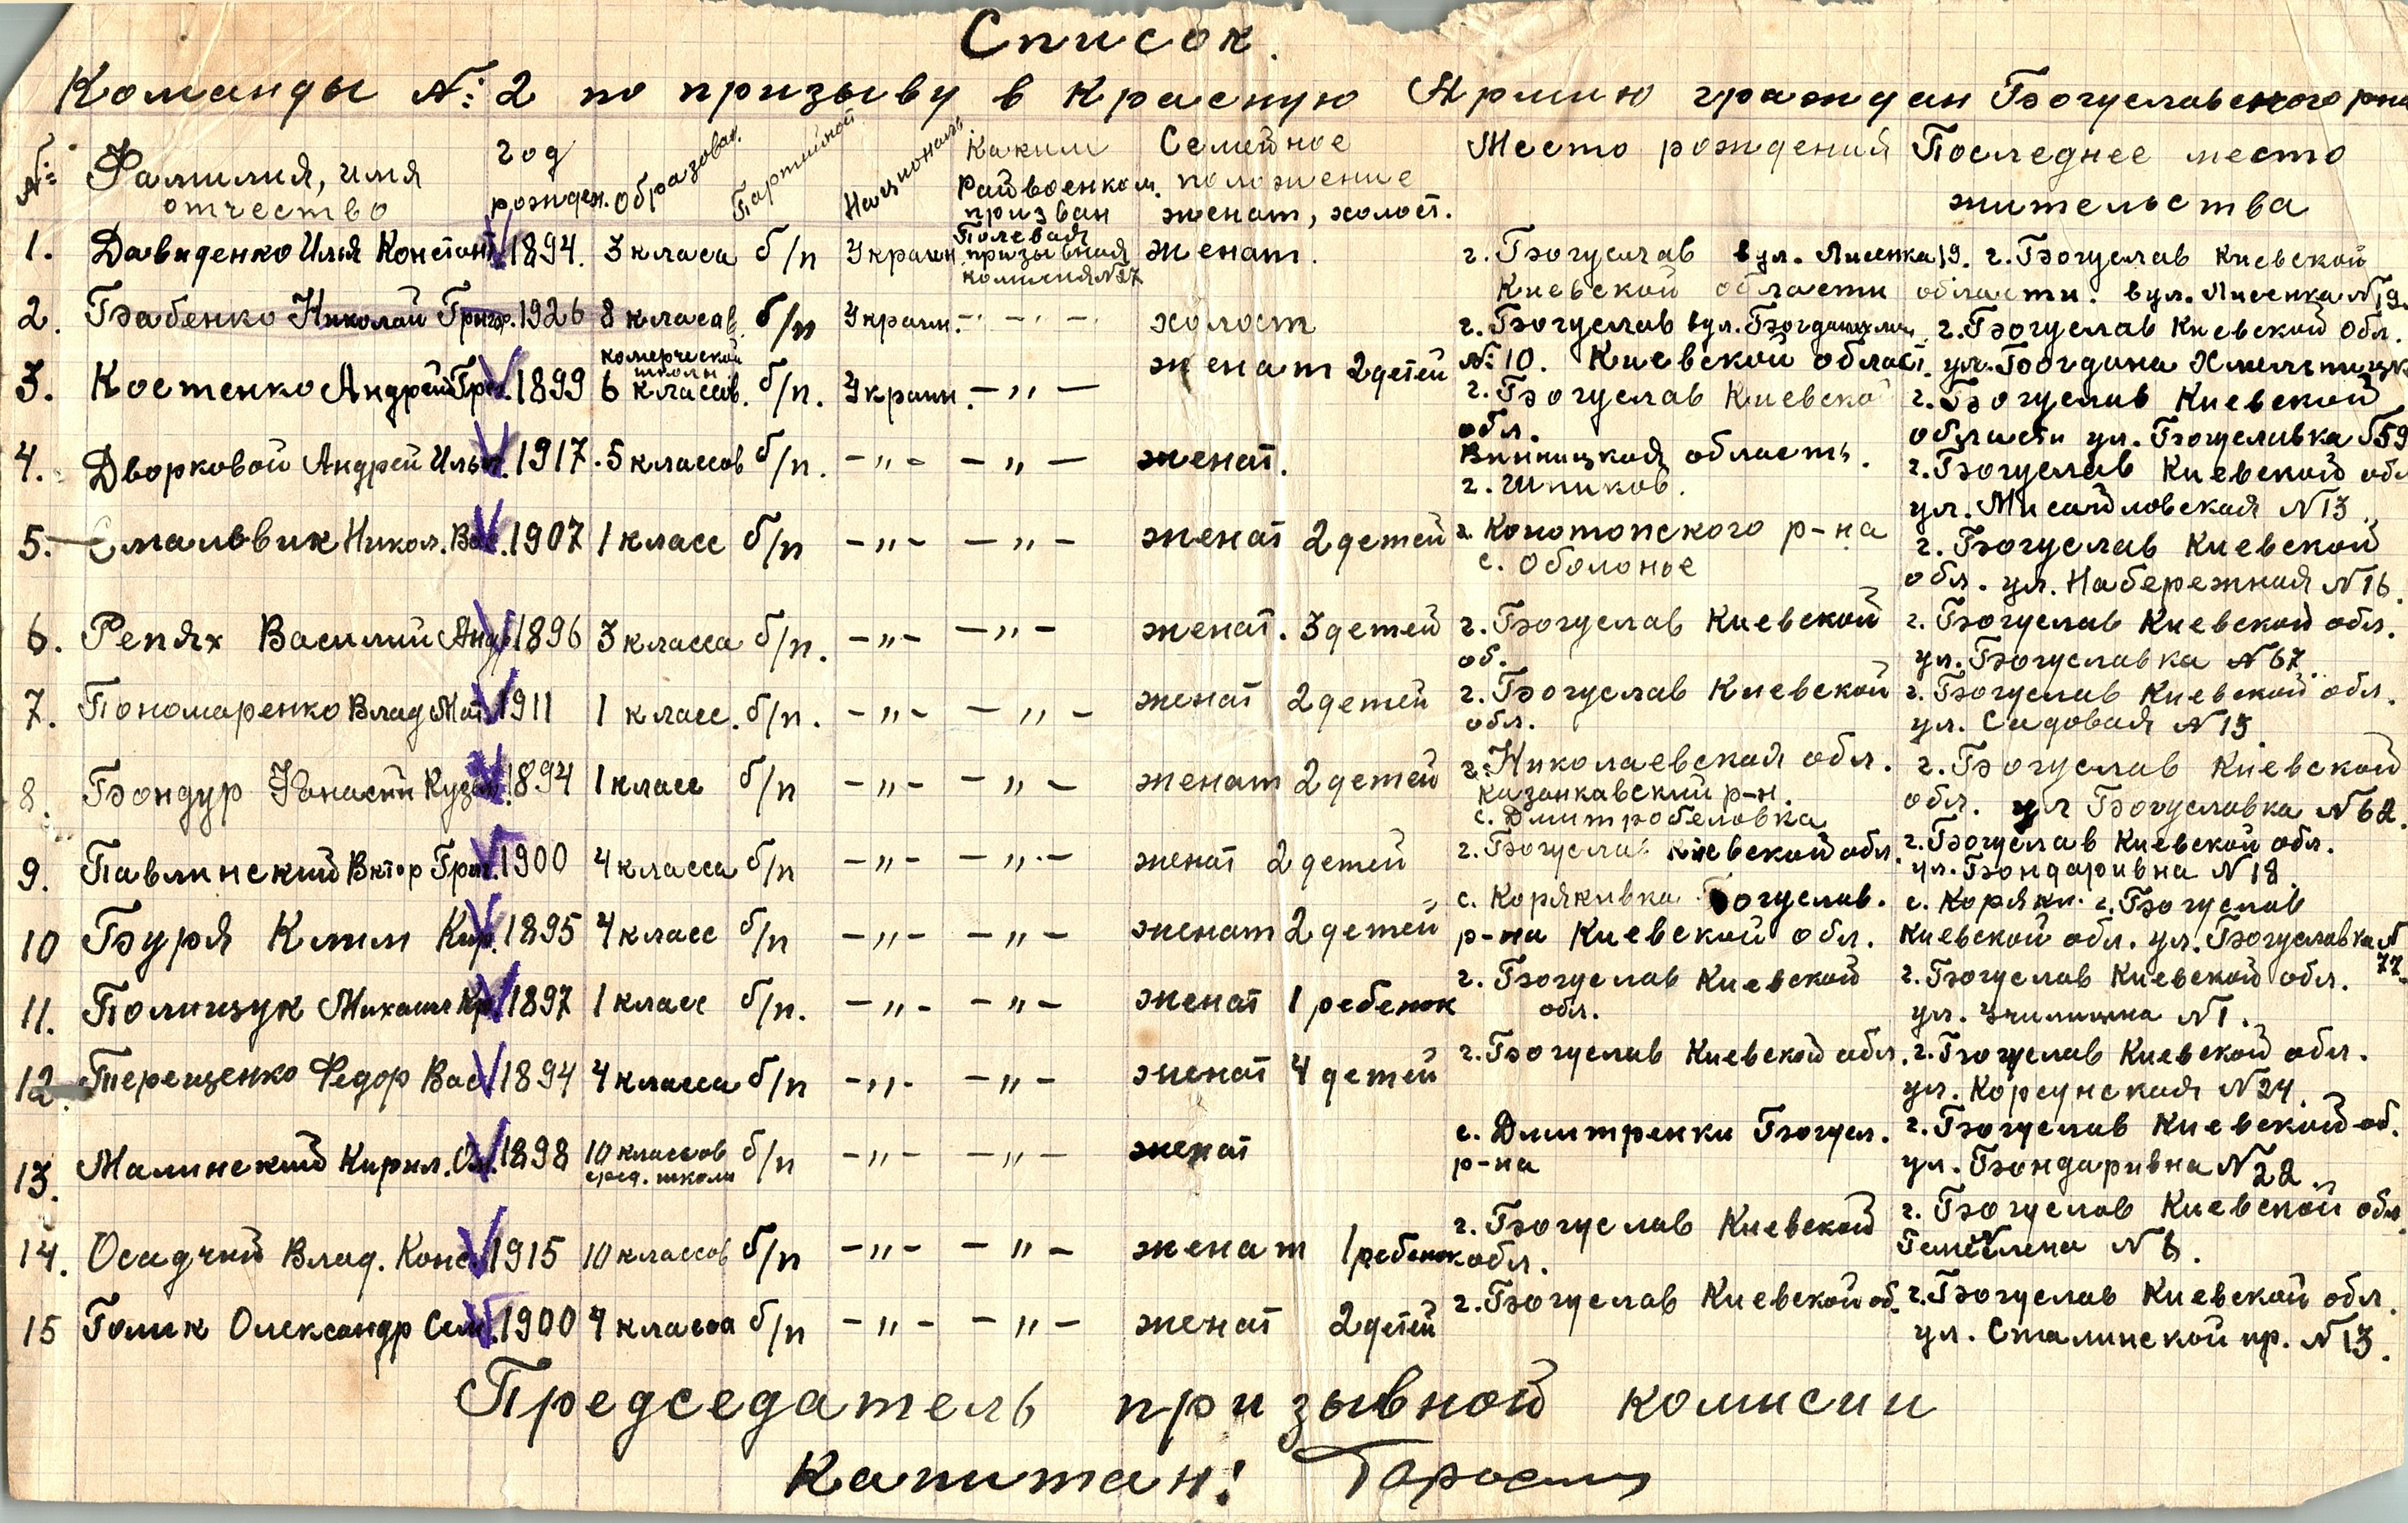 Список.
Команды №: 2 по призыву в Красную Армию граждан Богуславского р-на
№: Фамилия, имя отчество год рожден. образован. Партийной Националь. Каким Райвоенком. призван Семейное положение женат, холост. Место рождений Последнее место жительства
1. Давиденко Илья Констант 1894. 3 класса б/п Украин. Полевая призывная комисия №27 женат. г. Богуслав вул. Лисенка 19. Киевской области г. Богуслав Киевской области. вул. Лисенка №19.
2. Бабенко Николай Григор. 1926 8 класав. б/п Украин. -"- холост г. Богуслав вул. №: 10. Киевской област. г. Богуслав Киевской обл. ул. Богдана
3. Костенко Андрей Григ. 1899 комерческой школы 6 классов. б/п. Украин. -"- женат 2 детей г. Богуслав Киевско обл. г. Богуслав Киевской области ул. Богуславка №59
4. Дворковой Андрей Ильич. 1917. 5 классов б/п. -"- -"- женат. Винницкая область. г. Шпиков. г. Богуслав Киевской обл ул. Мисайловская №13
5. Смальвик Никол. Вас. 1907 1 класс б/п -"- -"- женат 2 детей г. Конотопского р-на с. Оболонье г. Богуслав Киевской обл. ул. Набережная №16.
6. Репях Василий Анд 1896 3 класса б/п. -"- -"- женат. 3 детей г. Богуслав Киевской об. г. Богуслав Киевской обл. ул. Богуславка №67.
7. Пономаренко Влад Мат. 1911 1 класс. б/п. -"- -"- женат 2 детей г. Богуслав Киевской обл. г. Богуслав Киевской обл. ул. Садовая №13.
8. Бондур Кузьм. 1894 1 класс б/п -"- -"- женат 2 детей г. Николаевская обл. Казанкавский р-н. с. Дмитробеловка г. Богуслав Киевской обл. ул Богуславка №62.
9. Павлинский Вктор Григ. 1900 4 класса б/п -"- -"- женат 2 детей г. Богуслав Киевской обл. г. Богуслав Киевской обл. ул. Бондаривна №18.
10 Буря Клим Кир. 1895 4 класс б/п -"- -"- женат 2 детей с. Корякивка Богуслав. р-на Киевской обл. с. Коряки. г. Богуслав Киевской обл. ул. Богуславка № 77.
11. Полищук Михаил Кр. 1897 1 класс б/п. -"- -"- женат 1 ребенок г. Богуслав Киевской обл. г. Богуслав Киевской обл. ул. №1.
12. Терещенко Федор Вас. 1894 4 класса б/п -"- -"- женат 4 детей г. Богуслав Киевской обл. г. Богуслав Киевской обл. ул. Корсунская №24.
13. Малинский Кирил. 1898 10 классов сред. школи б/п -"- -"- женат с. Дмитренки Богусл. р-на г. Богуслав Киевской об. ул. Бондаривна №22.
14. Осадчий Влад. Конс. 1915 10 классов б/п -"- -"- женат 1 ребенок г. Богуслав Киевской обл. г. Богуслав Киевской обл №6.
15 Голик Олександр Сем. 1900 4 класса б/п -"- -"- женат 2 детей г. Богуслав Киевской об. г. Богуслав Киевской обл. ул. Сталинской пр. №13.
Председатель призывной комисии
Капитан!